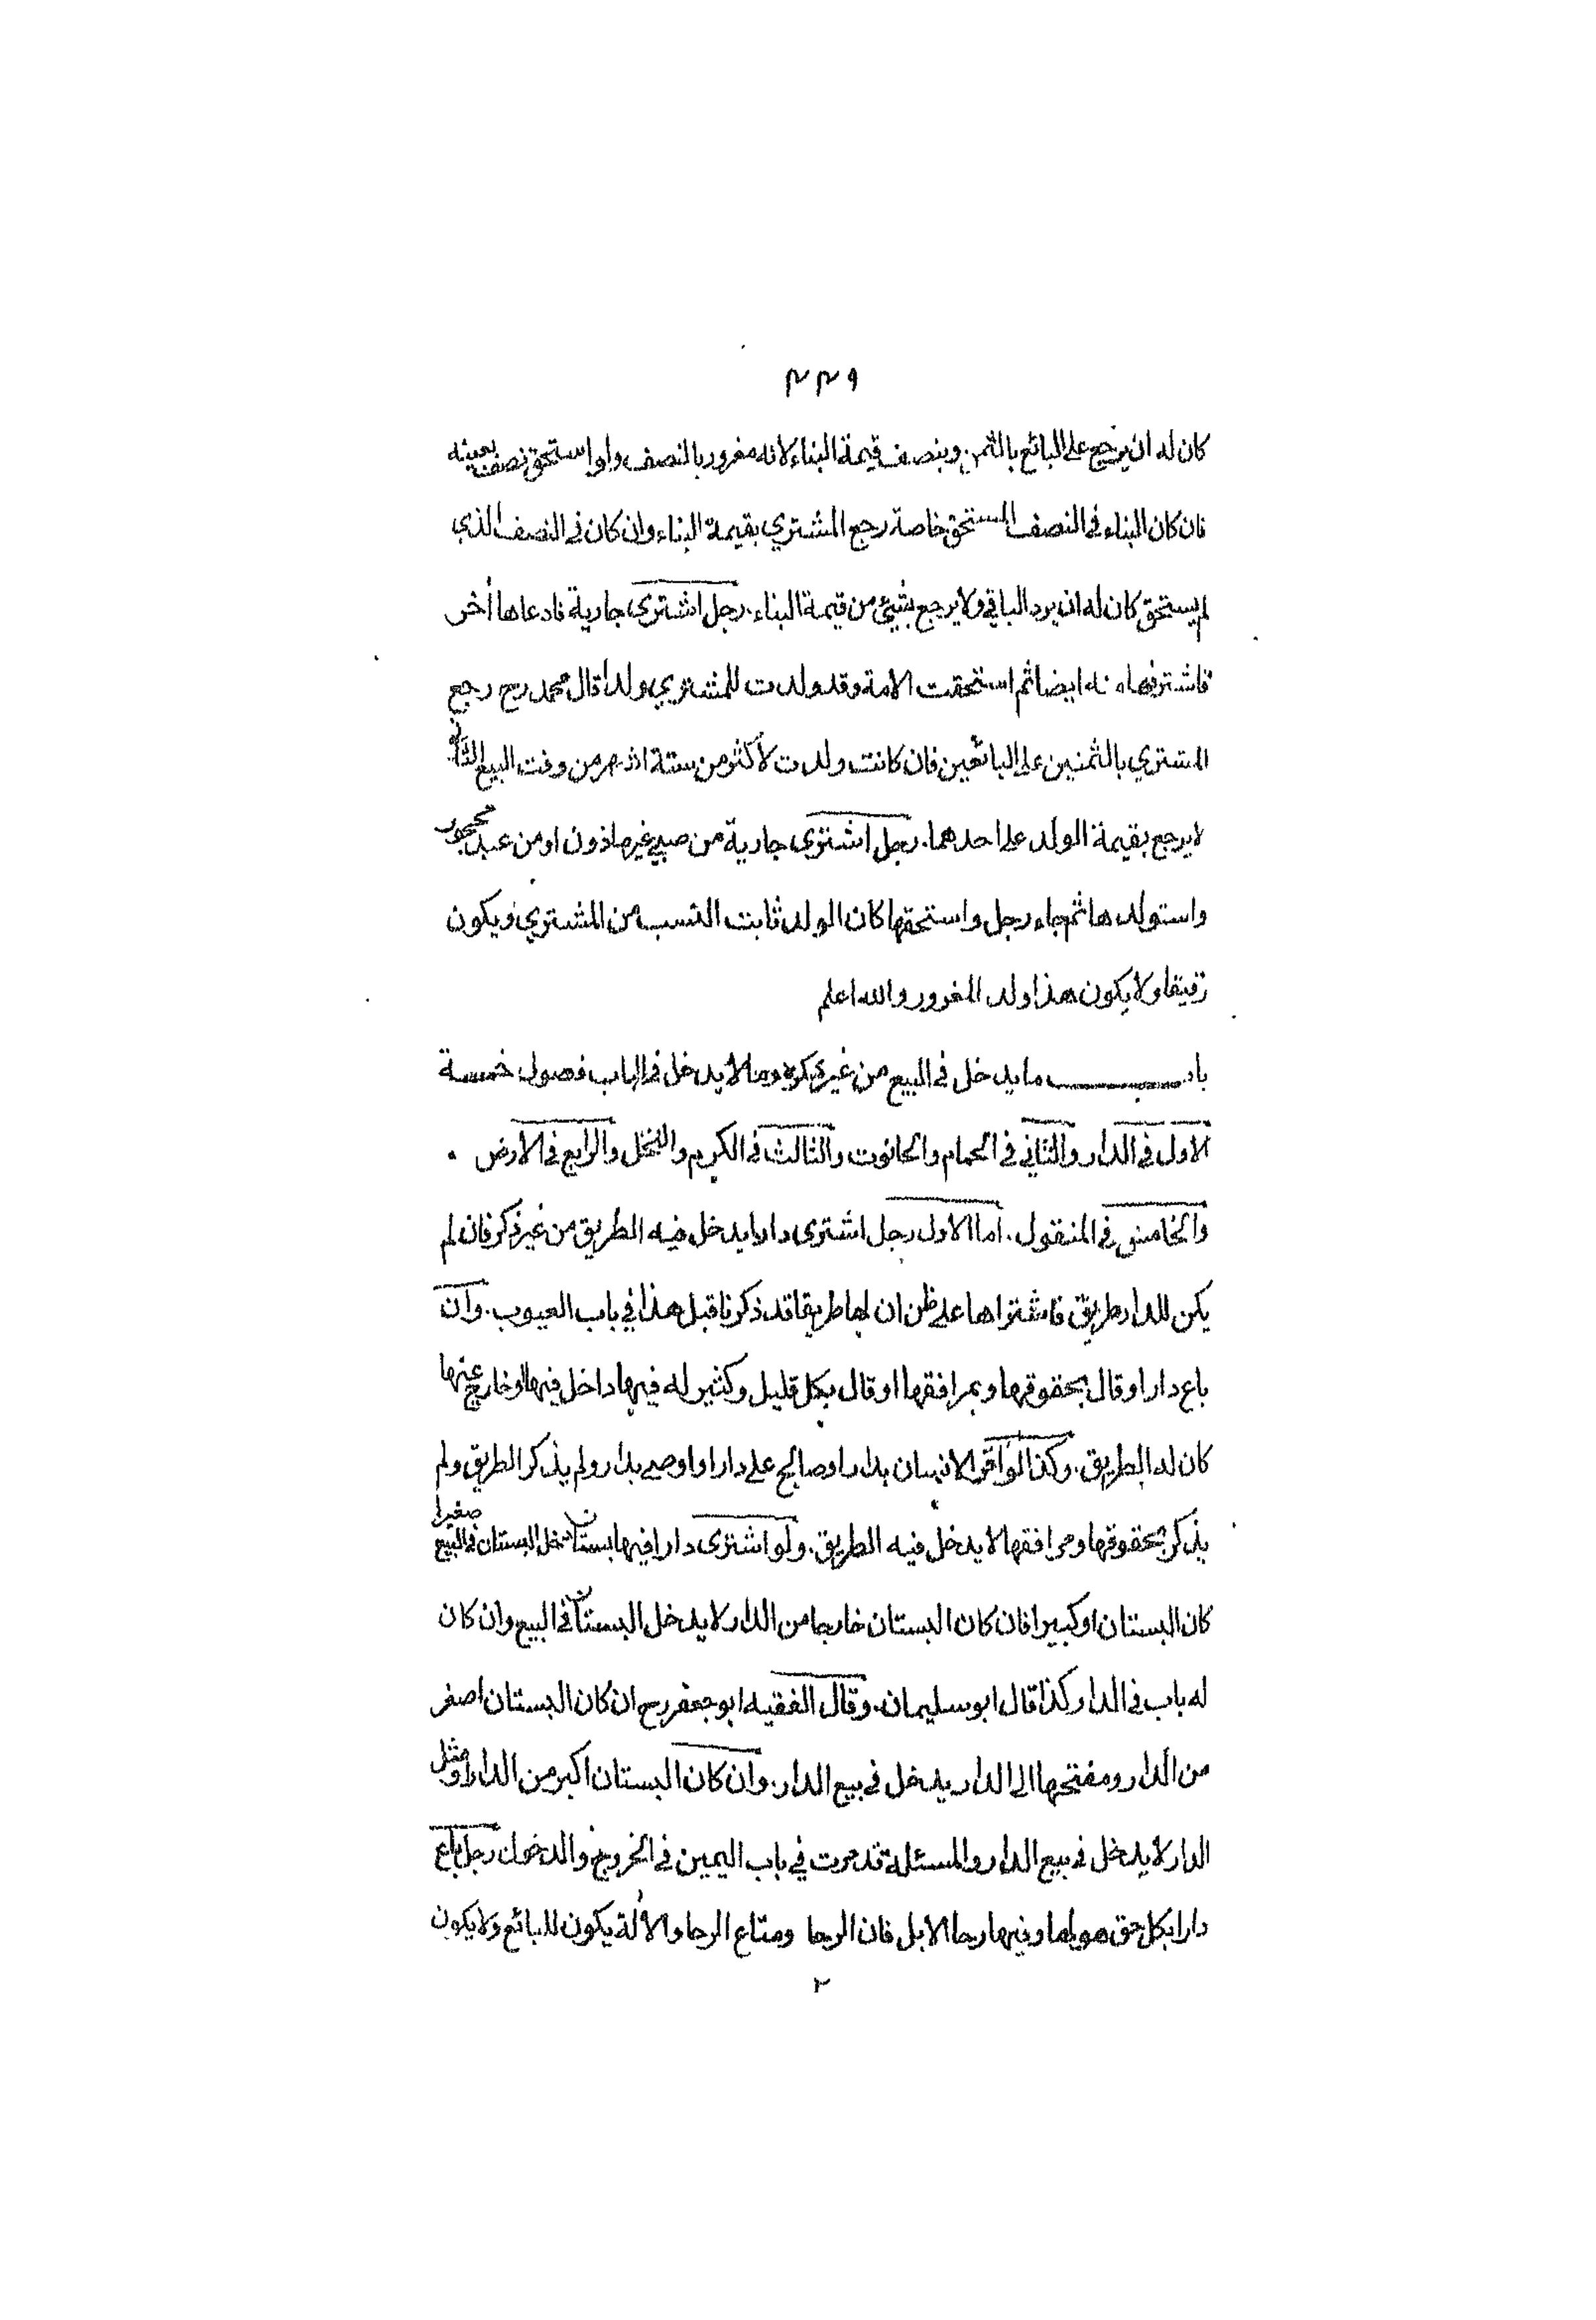 ٣٣٩
كان له ان يرجع على البائع بالثمن وبنصف قيمة البناء لانه مغرور بالنصف ولو استحق نصفه بعينه
فان كان البناء في النصف المستحق خاصة رجع المشتري بقيمة البناء وان كان في النصف الذي
لم يستحق كان له ان يرد الباقي ولا يرجع بشيئ من قيمة البناء. رجل اشترى جارية فادعاها أخر
فاشتريها منه ايضا ثم استحقت الامة وقد ولدت للمشتري ولدا قال محمد رح رجع
المشتري بالثمنين على البائعين فان كانت ولدت لأكثر من ستة اشهر من وقت البيع الثاني
لا يرجع بقيمة الولد على احدهما. رجل اشترى جارية من صبي غير ماذون او من عبد محجور
واستولدها ثم جاء رجل واستحقها كان الولد ثابت النسب من المشتري ويكون
رقيقا ولا يكون هذا ولد المغرور والله اعلم
باب ما يدخل في البيع من غير ذكره وما لا يدخل في الباب فصول خمسة
الاول في الدار والثاني في الحمام والحانوت والثالث في الكرم والنخل والرابع في الارض .
والخامس في المنقول. اما الاول رجل اشترى دارا يدخل فيه الطريق من غير ذكر فان لم
يكن للدار طريق فاشتراها على ظن ان لها طريقا قد ذكرنا قبل هذا في باب العيوب. وان
باع دارا وقال بحقوقها وبمرافقها او قال بكل قليل وكثير له فيها داخل فيها او خارج عنها
كان له الطريق. وكذا لو اقر لانسان بدار او صالح على دار او اوصى بدار ولم يذكر الطريق ولم
يذكر بحقوقها ومرافقها لا يدخل فيه الطريق. ولو اشترى دارا فيها بستان يدخل البستان في البيع صغيرا
كان البستان او كبيرا فان كان البستان خارجا من الدار لا يدخل البستان في البيع وان كان
له باب في الدار كذا قال ابو سليمان. وقال الفقيه ابو جعفر رح ان كان البستان اصغر
من الدار ومفتحها الى الدار يدخل في بيع الدار. وان كان البستان اكبر من الدار او مثل
الدار لا يدخل في بيع الدار والمسئلة قد مرت في باب اليمين في الخروج والدخول رجل باع
دارا بكل حق هو لها وفيها رحا الابل فان الرحا ومتاع الرحا والألة يكون للبائع ولا يكون
٢